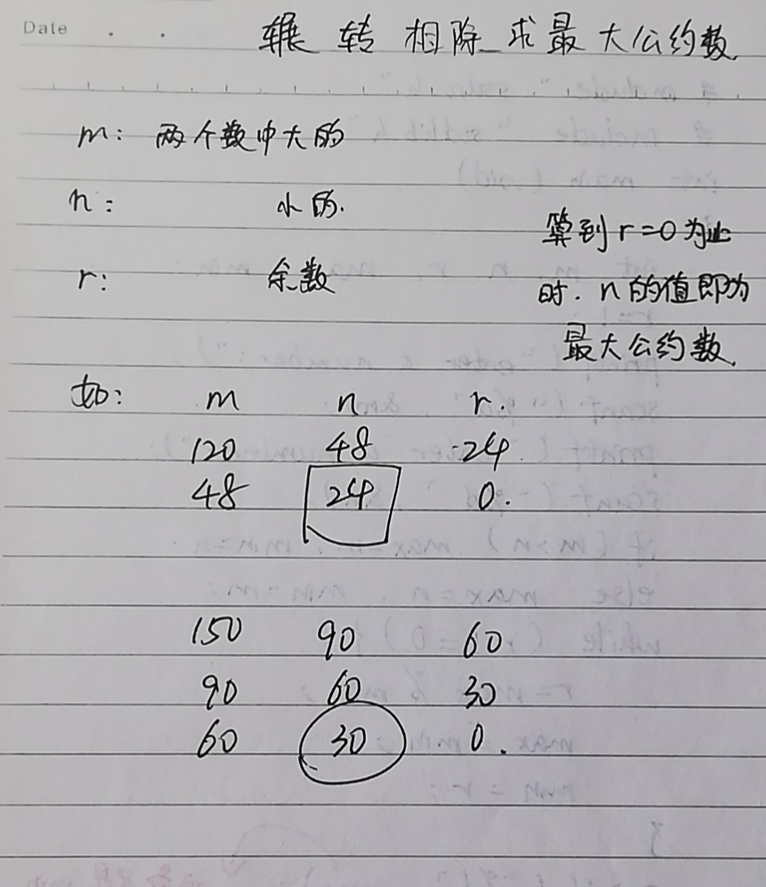 Date
辗转相除 求最大公约数
m: 两个数中大的
n: 小的.
算到r=0为止
r: 余数
时. n的值即为
最大公约数.
如: m n r.
120 48 24
48 24 0.
150 90 60
90 60 30
60 30 0.